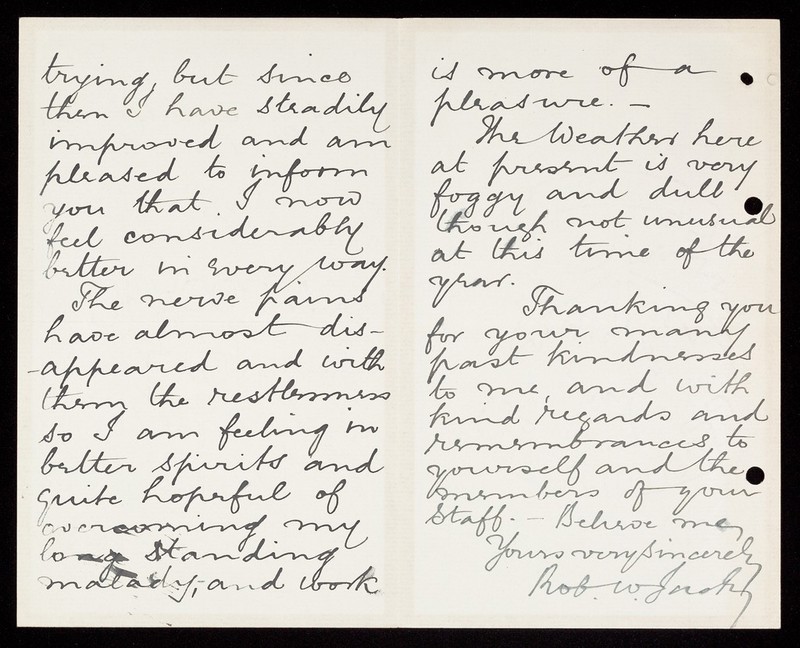 trying, but since
then I have steadily
improved and am
pleased to inform
you that I now
feel considerably
better in every way.
The nerve pains
have almost dis-
-appeared and with
them the restlessness
so I am feeling in
better spirits and
quite hopeful of
overcoming my
long standing
malady, and work
is more of a
pleasure. —
The Weather here
at present is very
foggy and dull
though not unusual
at this time of the
year.
Thanking you
for your many
past kindnesses
to me, and with
kind regards and
remembrances to
yourself and the
members of your
Staff. — Believe me,
Yours very sincerely
Rob. W.